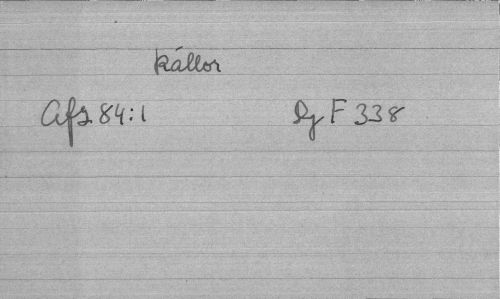 källor
Afz. 84:1 Dz F 338